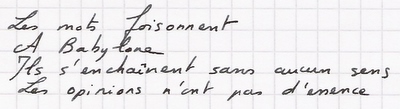 Les mots foisonnent
A Babylone
Ils s'enchaînent sans aucun sens
Les opinions n'ont pas d'essence